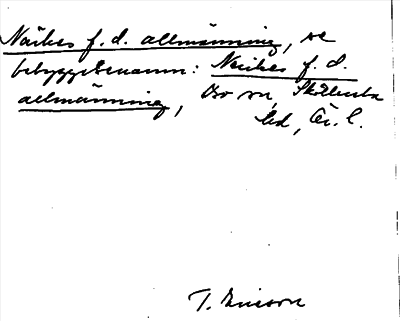 Närkes f. d. allmänning, se
bebyggelsenamn: Närkes f. d.
allmänning, Bo sn, Sköllersta
hd, Ör. l.
T. Ericson